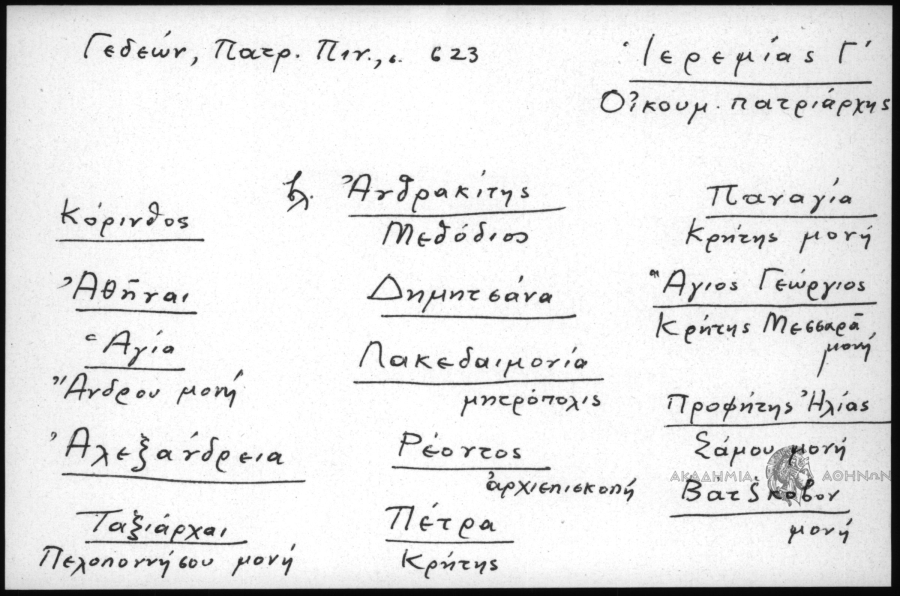 Γεδεών, Πατρ. Πιν., σ. 623
Ἱερεμίας Γ'
Οἰκουμ. πατριάρχης
Κόρινθος
Ἀθῆναι
Ἁγία
Ἄνδρου μονή
Ἀλεξάνδρεια
Ταξιάρχαι
Πελοποννήσου μονή
βλ. Ἀνθρακίτης
Μεθόδιος
Δημητσάνα
Λακεδαιμονία
μητρόπολις
Ρέοντος
ἀρχιεπισκοπή
Πέτρα
Κρήτης
Παναγία
Κρήτης μονή
Ἅγιος Γεώργιος
Κρήτης Μεσσαρᾶ
μονή
Προφήτης Ἠλίας
Σάμου μονή
ΑΚΑΔΗΜΙΑ ΑΘΗΝΩΝ
Βατζκοβον
μονή